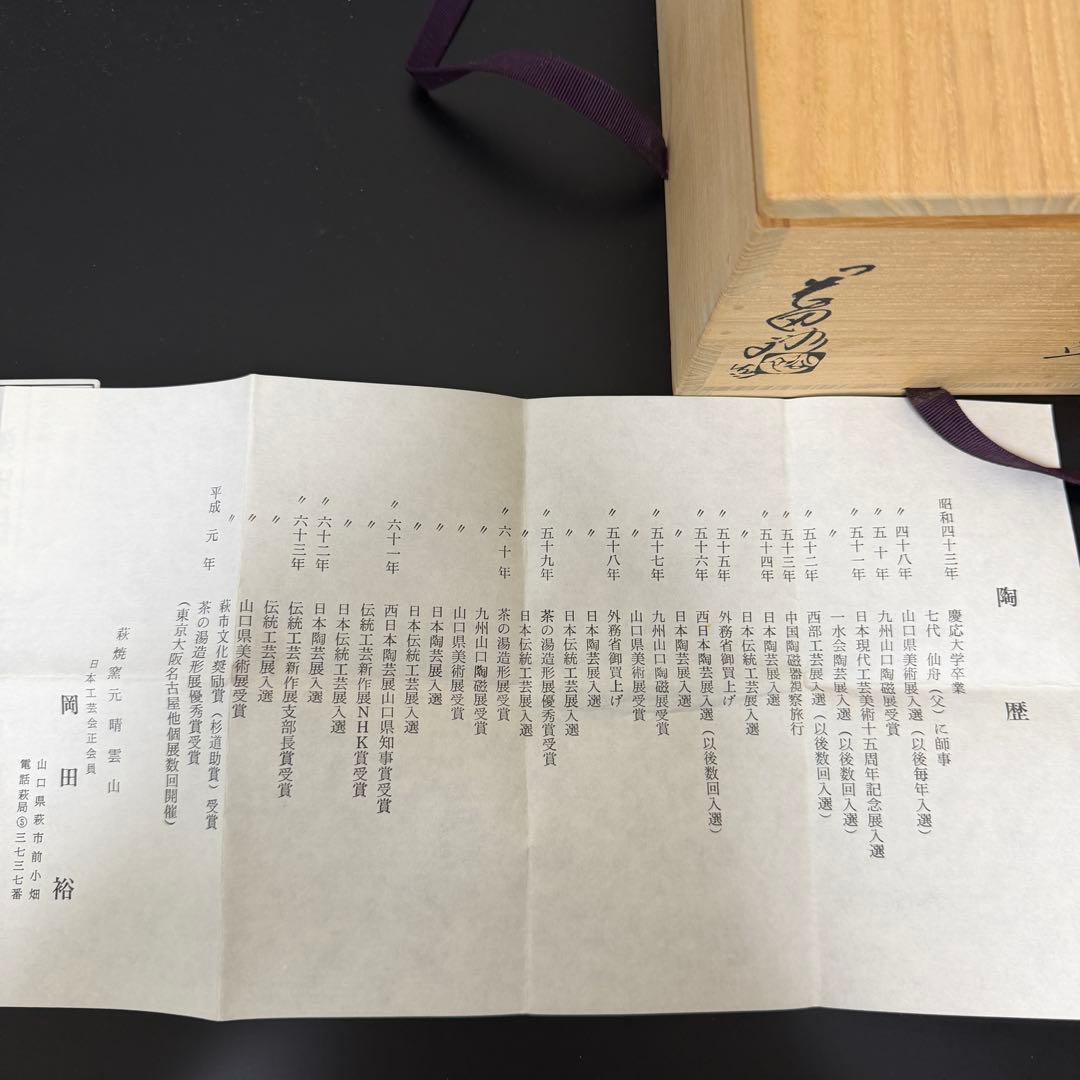 陶歴
昭和四十三年 慶応大学卒業
七代 仙舟（父）に師事
〃 四十八年 山口県美術展入選（以後毎年入選）
〃 五十年 九州山口陶磁展受賞
〃 五十一年 日本現代工芸美術十五周年記念展入選
〃 一水会陶芸展入選（以後数回入選）
〃 五十二年 西部工芸展入選（以後数回入選）
〃 五十三年 中国陶磁器視察旅行
〃 五十四年 日本陶芸展入選
〃 日本伝統工芸展入選
〃 五十五年 外務省御買上げ
〃 五十六年 西日本陶芸展入選（以後数回入選）
〃 日本陶芸展入選
〃 五十七年 九州山口陶磁展受賞
〃 山口県美術展受賞
〃 五十八年 外務省御買上げ
〃 日本陶芸展入選
〃 日本伝統工芸展入選
〃 五十九年 茶の湯造形展優秀賞受賞
〃 日本伝統工芸展入選
〃 六十年 茶の湯造形展受賞
〃 九州山口陶磁展受賞
〃 山口県美術展受賞
〃 日本陶芸展入選
〃 日本伝統工芸展入選
〃 六十一年 西日本陶芸展山口県知事賞受賞
〃 伝統工芸新作展NHK賞受賞
〃 日本伝統工芸展入選
〃 六十二年 日本陶芸展入選
〃 六十三年 伝統工芸新作展支部長賞受賞
〃 伝統工芸展入選
〃 山口県美術展受賞
〃 萩市文化奨励賞（杉道助賞）受賞
平成元年 茶の湯造形展優秀賞受賞
（東京大阪名古屋他個展数回開催）
萩焼窯元 晴雲山
日本工芸会正会員
岡田 裕
山口県萩市前小畑
電話萩局⑤三七三七番